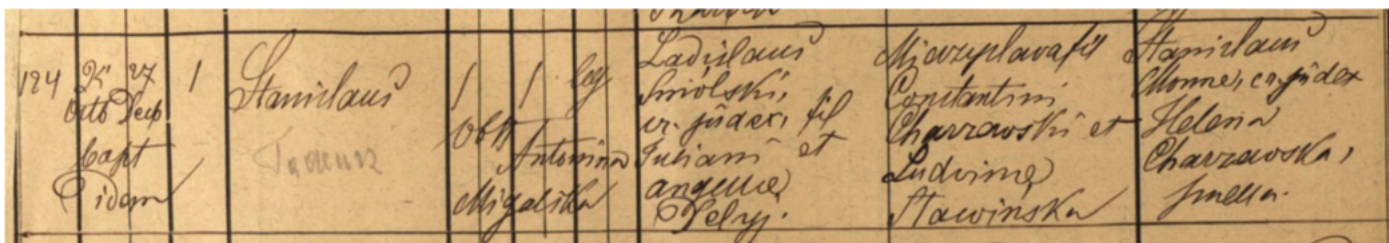 124
27
Octo Decb
bapt
idem
1
Stanislaus
Tadeusz
1 1 leg
Obst Antonina
Migalska
Ladislaus
Smólski,
cr. judex, fil
Juliani et
Angelae
Mieczyslava fil
Constantini
Charzewski et
Ludvinae
Stawińska
Stanislaus
cr. judex
Helena
Charzewska,